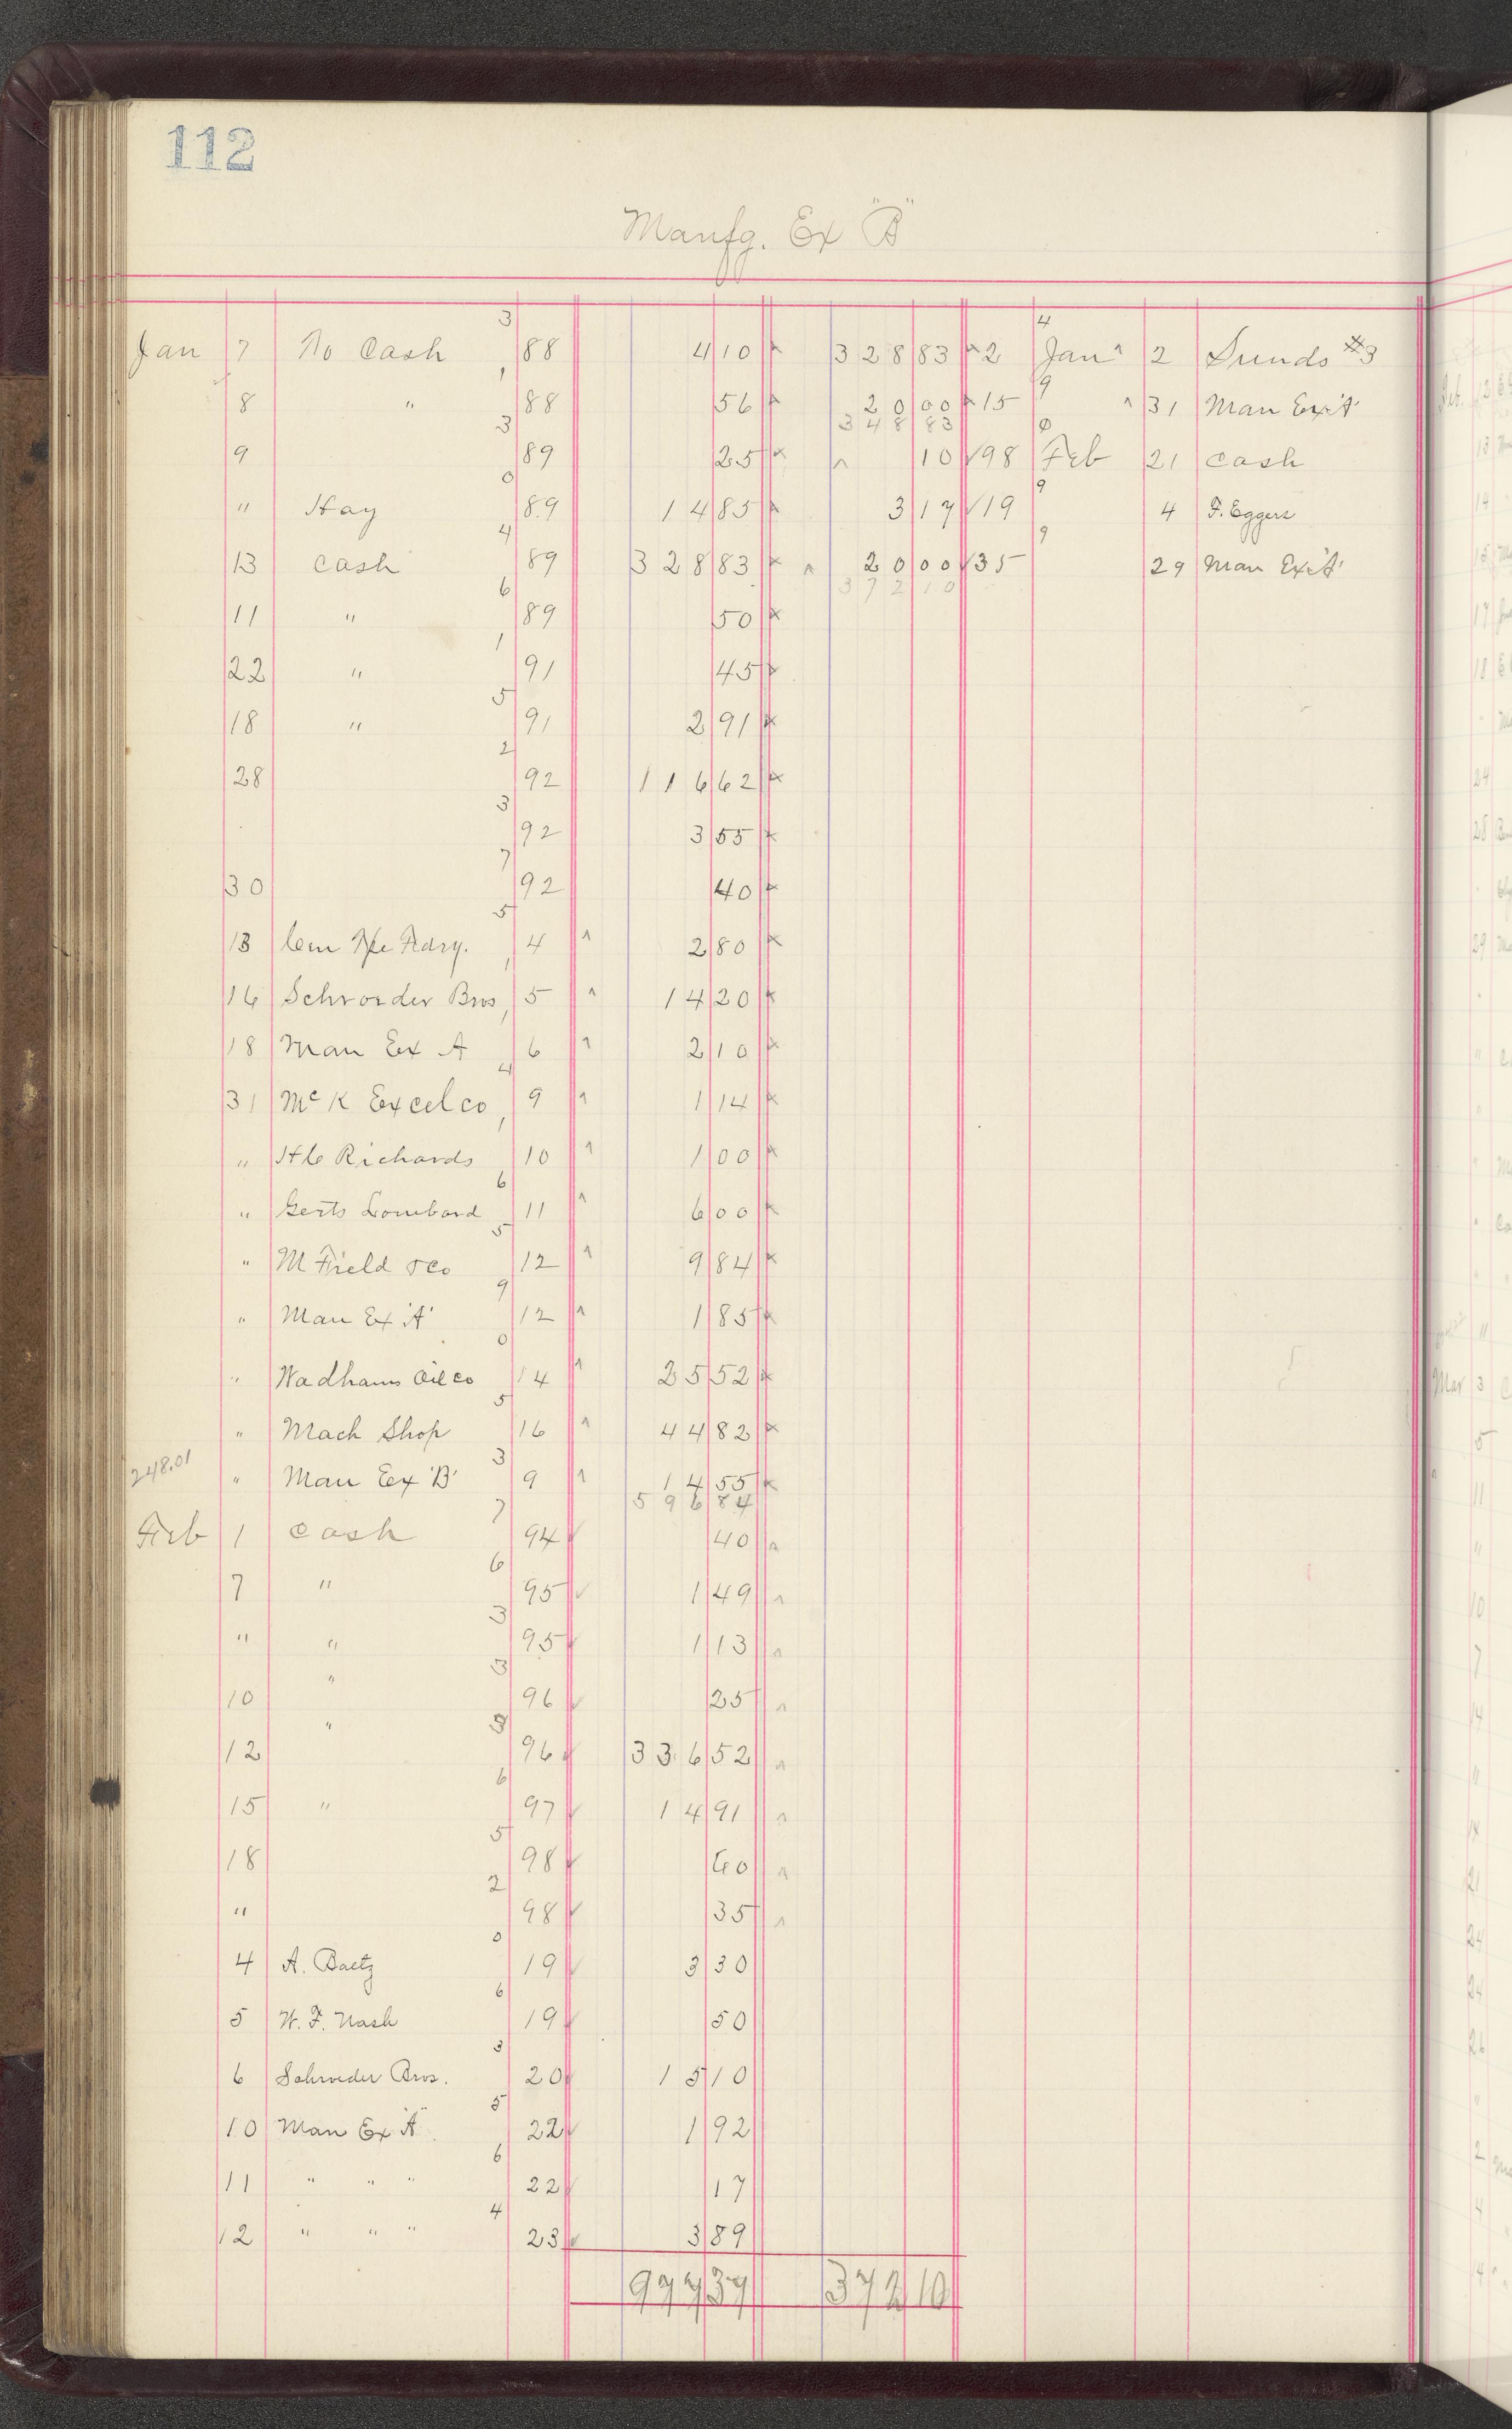 112
Manfg. Ex "B"
3 4
Jan 7 To Cash 88 4 10 328 83 2 Jan 2 Sunds #3
1 9
8 " 88 56 20 00 15 31 Man Ex 'A'
3 348 83 0
9 89 25 10 98 Feb 21 Cash
0 9
" Hay 89 14 85 3 17 19 4 F. Eggers
4 9
13 Cash 89 328 83 20 00 35 29 Man Ex 'A'
6 372 10
11 " 89 50
1
22 " 91 45
5
18 " 91 2 91
2
28 92 116 62
3
92 3 55
7
30 92 40
5
13 4 2 80
16 Schroeder Bros 5 14 20
18 Man Ex A 6 2 10
4
31 McK Excel co 9 1 14
" Richards 10 1 00
6
" Gerts Lombard 11 6 00
5
" M Field & Co 12 9 84
9
" Man Ex 'A' 12 1 85
0
" Wadhams Oil co 14 25 52
5
" Mach Shop 16 44 82
3
248.01 " Man Ex 'B' 9 14 55
7 596 84
Feb 1 Cash 94 40
6
7 " 95 1 49
3
" " 95 1 13
3
10 " 96 25
3
12 " 96 336 52
6
15 " 97 14 91
5
18 98 60
2
" 98 35
0
4 A. Baetz 19 3 30
6
5 W. F. Nash 19 50
3
6 Schroeder Bros. 20 15 10
5
10 Man Ex "A" 22 1 92
6
11 " " " 22 17
4
12 " " " 23 3 89
977 37 372 10